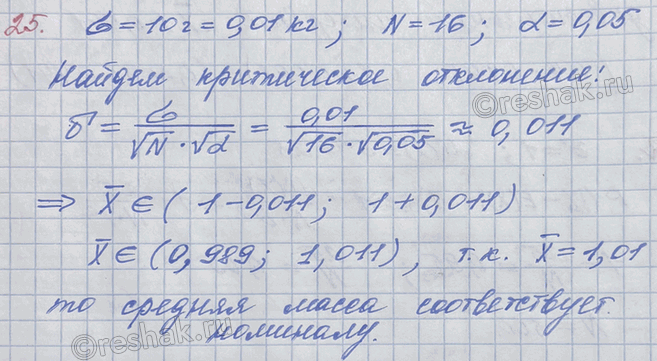 25. σ = 10 г = 0,01 кг ; N = 16 ; α = 0,05
Найдем критическое отклонение:
δ = σ / (√N · √α) = 0,01 / (√16 · √0,05) ≈ 0,011
⇒ X̄ ∈ ( 1 - 0,011 ; 1 + 0,011 )
X̄ ∈ (0,989 ; 1,011) , т.к. X̄ = 1,01
то средняя масса соответствует
номиналу.
©reshak.ru